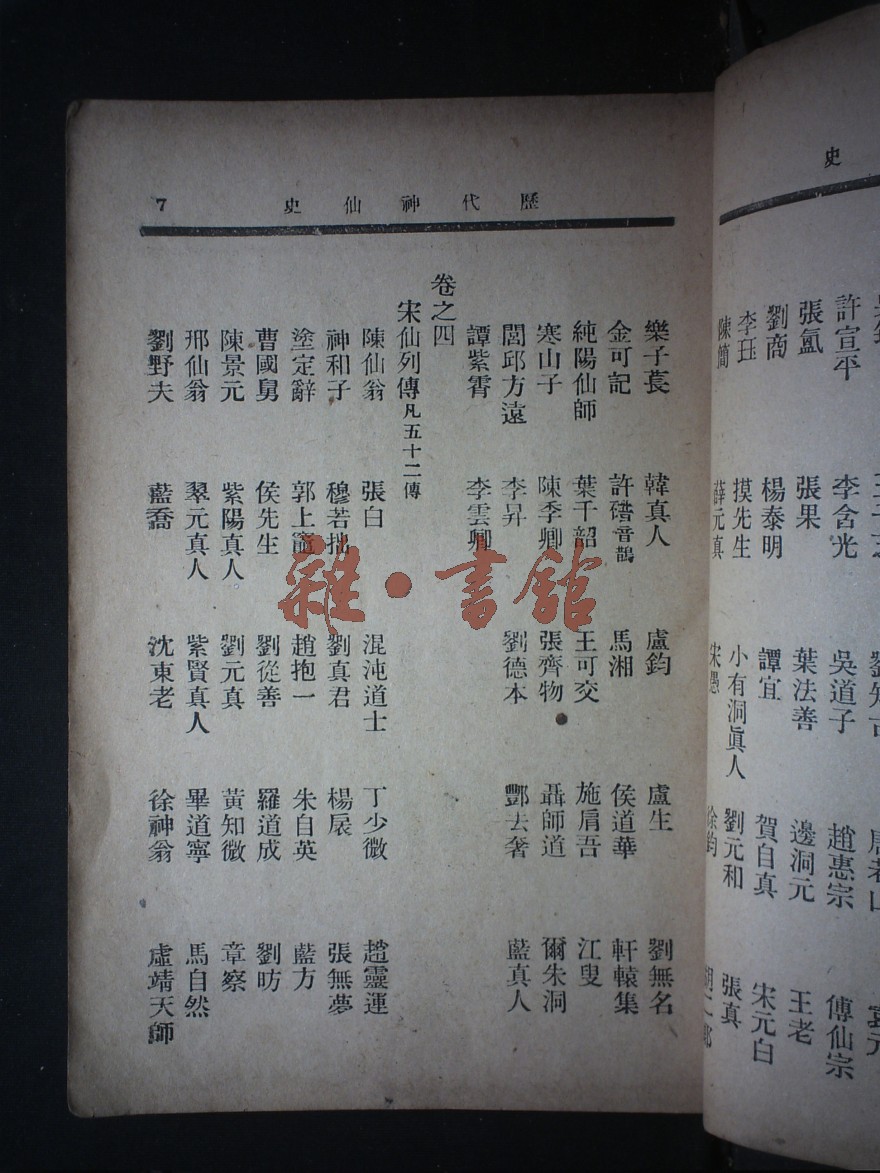 史
許宣平 李含光 吳道子 趙惠宗 傅仙宗
張氳 張果 葉法善 邊洞元 王老
劉商 楊泰明 譚宜 賀自真 宋元白
李珏 摸先生 小有洞眞人 劉元和 張真
陳簡 薛元真 宋愚 徐鈞
歷代神仙史 7
樂子萇 韓真人 盧鈞 盧生 劉無名
金可記 許碏音鵲 馬湘 侯道華 軒轅集
純陽仙師 葉千韶 王可交 施肩吾 江叟
寒山子 陳季卿 張齊物 聶師道 爾朱洞
閭邱方遠 李昇 劉德本 酆去奢 藍真人
譚紫霄 李雲卿
卷之四
宋仙列傳凡五十二傳
陳仙翁 張白 混沌道士 丁少微 趙靈運
神和子 穆若拙 劉真君 楊扆 張無夢
塗定辭 郭上竈 趙抱一 朱自英 藍方
曹國舅 侯先生 劉從善 羅道成 劉昉
陳景元 紫陽真人 劉元真 黃知微 章察
邢仙翁 翠元真人 紫賢真人 畢道寧 馬自然
劉野夫 藍喬 沈東老 徐神翁 虛靖天師
雜·書館